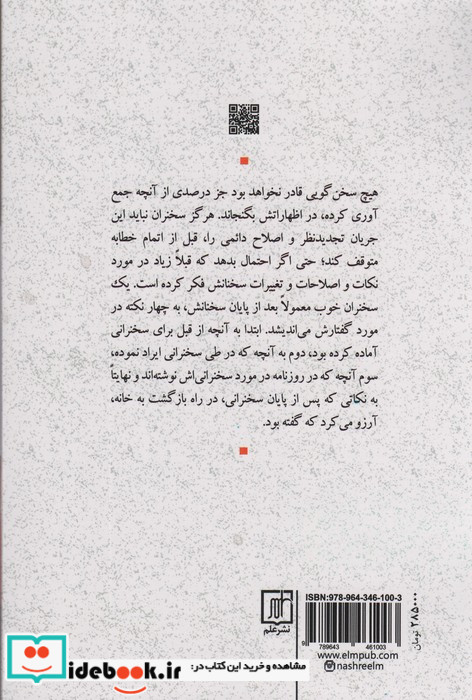 هیچ سخن‌گویی قادر نخواهد بود جز درصدی از آنچه جمع
آوری کرده، در اظهاراتش بگنجاند. هرگز سخنران نباید این
جریان تجدیدنظر و اصلاح دائمی را، قبل از اتمام خطابه
متوقف کند؛ حتی اگر احتمال بدهد که قبلاً زیاد در مورد
نکات و اصلاحات و تغییرات سخنانش فکر کرده است. یک
سخنران خوب معمولاً بعد از پایان سخنانش، به چهار نکته در
مورد گفتارش می‌اندیشد. ابتدا به آنچه از قبل برای سخنرانی
آماده کرده بود، دوم به آنچه که در طی سخنرانی ایراد نموده،
سوم آنچه که در روزنامه در مورد سخنرانی‌اش نوشته‌اند و نهایتاً
به نکاتی که پس از پایان سخنرانی، در راه بازگشت به خانه،
آرزو می‌کرد که گفته بود.
ISBN:978-964-346-100-3
9 789643 461003
www.elmpub.com
nashreelm
۲۸۵۰۰۰ تومان
نشرعلم
مشاهده و خرید این کتاب در:
idebook.ir